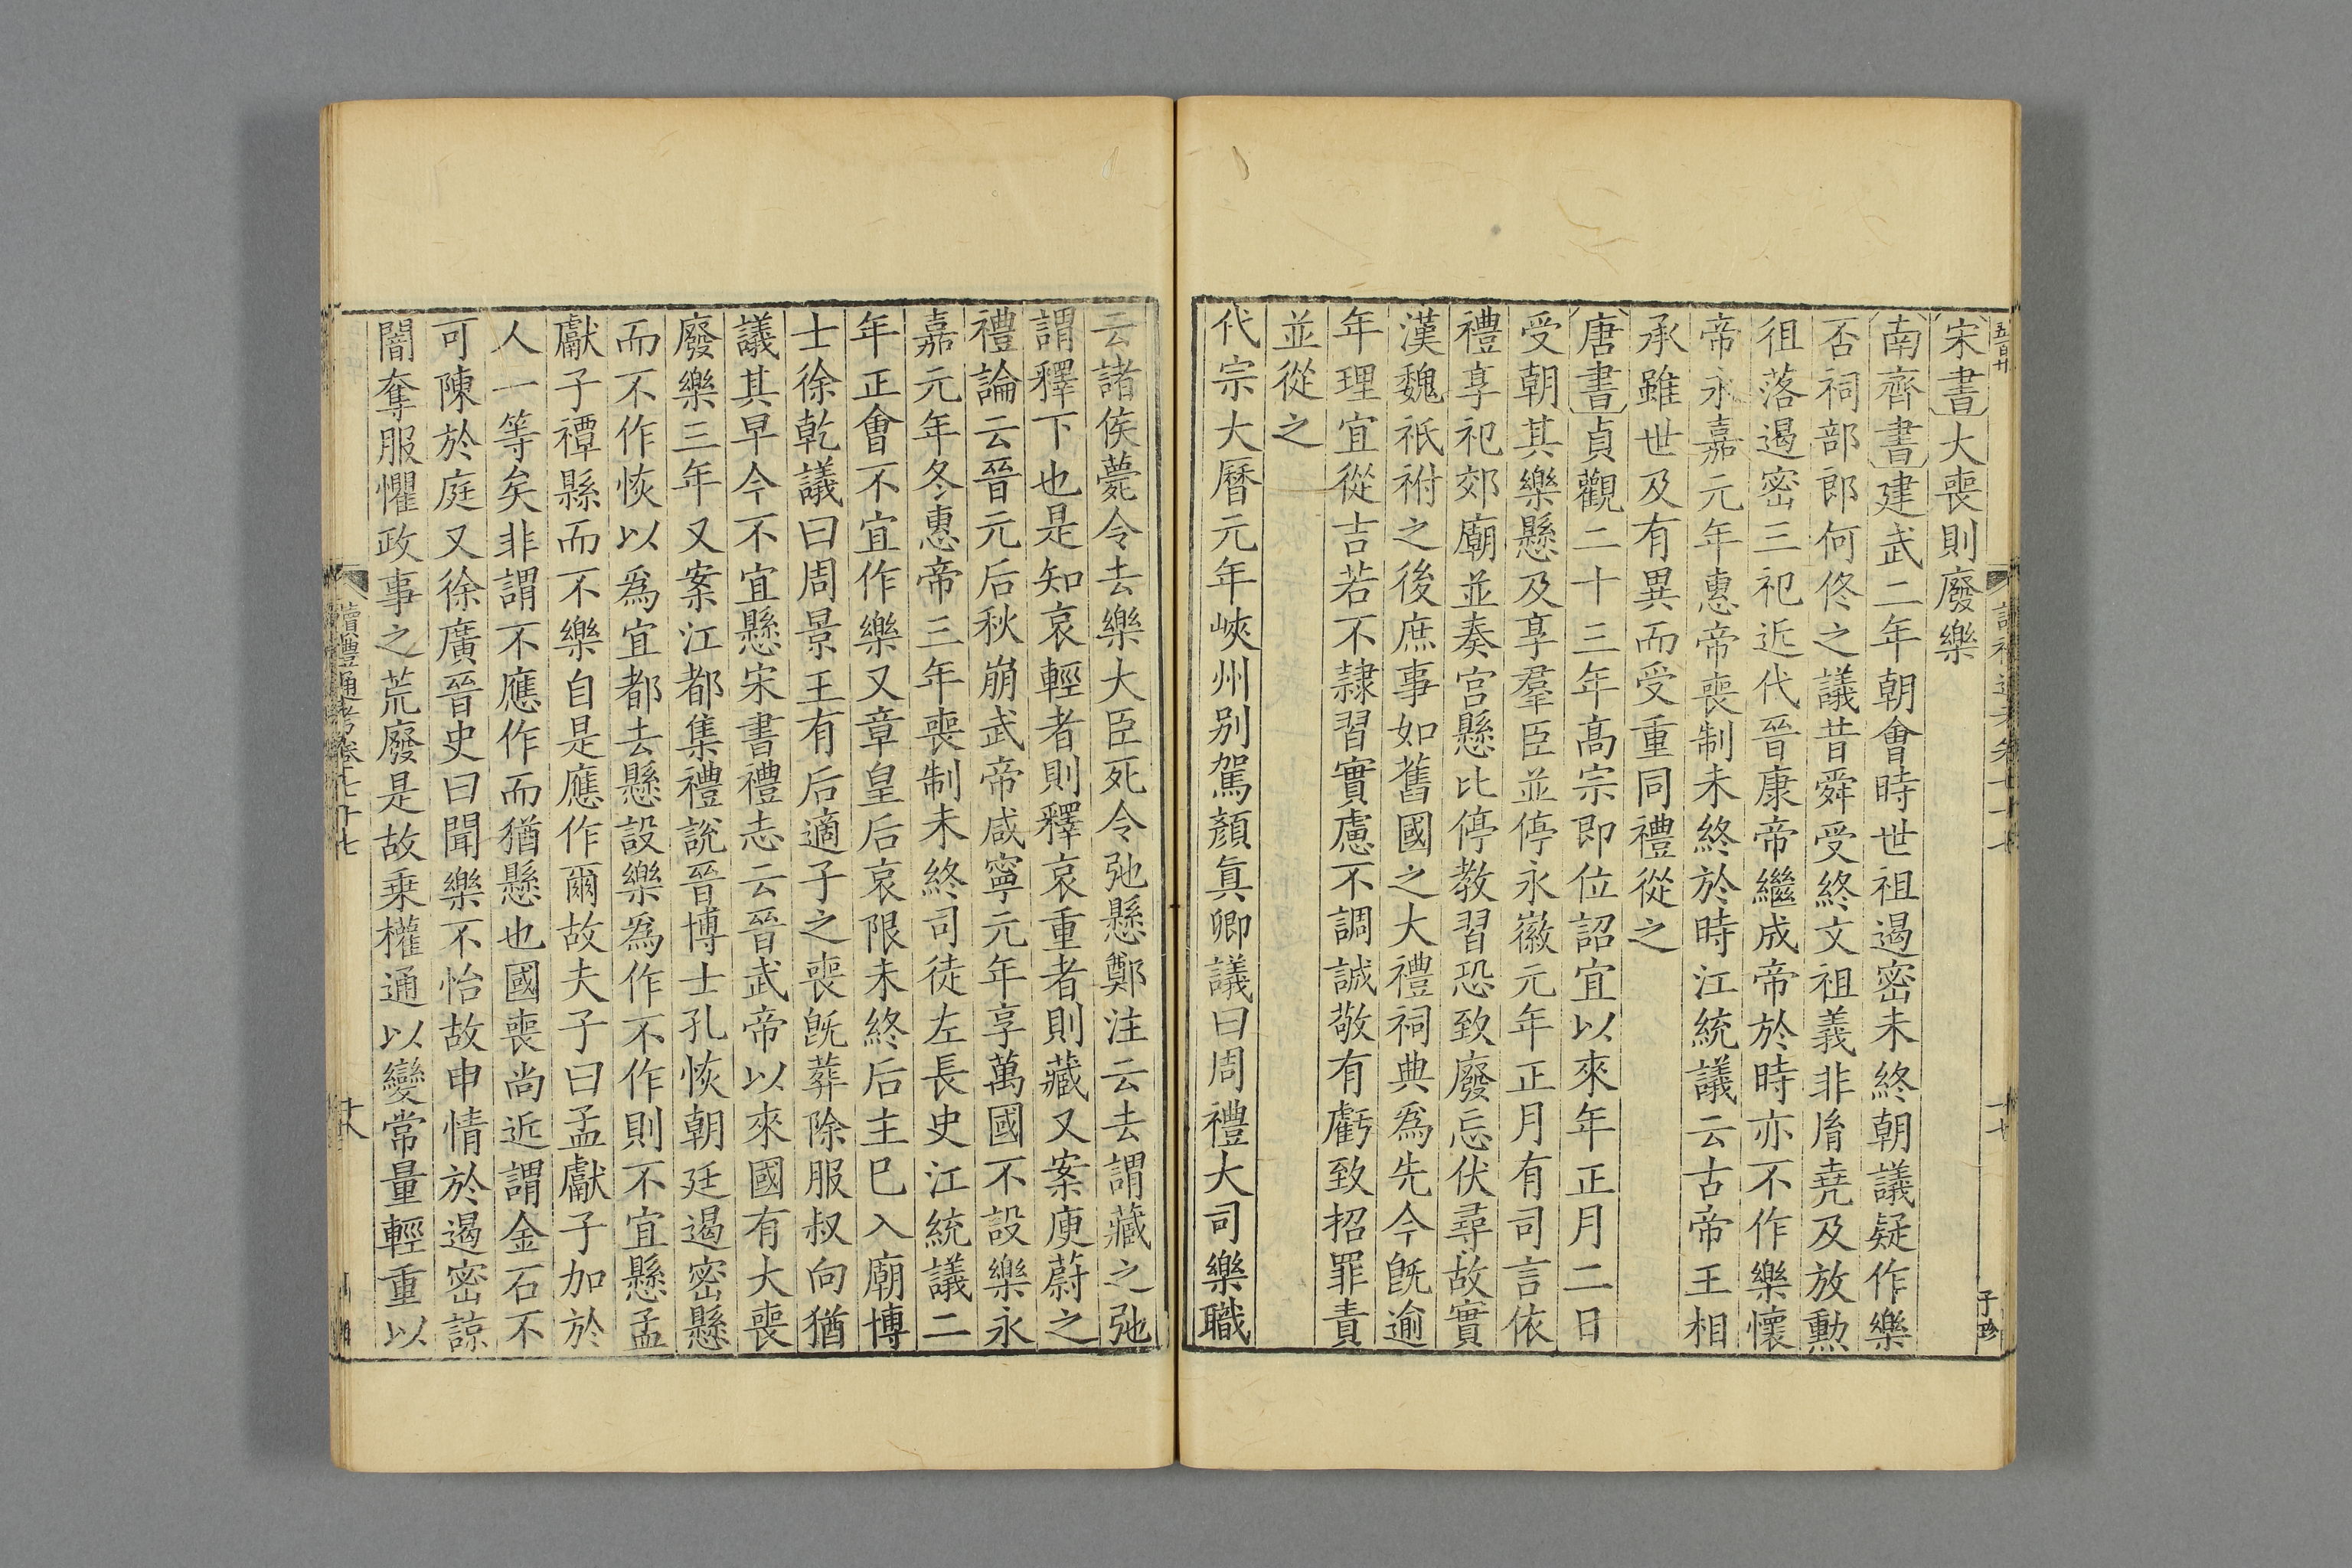 宋書大喪則廢樂
南齊書建武二年朝會時世祖遏密未終朝議疑作樂
否祠部郎何佟之議昔舜受終文祖義非胤堯及放勳
徂落遏密三祀近代晉康帝繼成帝於時亦不作樂懷
帝永嘉元年惠帝喪制未終於時江統議云古帝王相
承雖世及有異而受重同禮從之
唐書貞觀二十三年高宗即位詔宜以來年正月二日
受朝其樂懸及享羣臣並停永徽元年正月有司言依
禮享祀郊廟並奏宮懸比停教習恐致廢忘伏尋故實
漢魏祇祔之後庶事如舊國之大禮祠典為先今旣逾
年理宜從吉若不隷習實慮不調誠敬有虧致招罪責
並從之
代宗大曆元年峽州別駕顏真卿議曰周禮大司樂職
云諸侯薨令去樂大臣死令弛懸鄭注云去謂藏之弛
謂釋下也是知哀輕者則釋哀重者則藏又案庾蔚之
禮論云晉元后秋崩武帝咸寧元年享萬國不設樂永
嘉元年冬惠帝三年喪制未終司徒左長史江統議二
年正會不宜作樂又章皇后哀限未終后主已入廟博
士徐乾議曰周景王有后適子之喪旣葬除服叔向猶
議其早今不宜懸宋書禮志云晉武帝以來國有大喪
廢樂三年又案江都集禮說晉博士孔恢朝廷遏密懸
而不作恢以為宜都去懸設樂為作不作則不宜懸孟
獻子禫縣而不樂自是應作爾故夫子曰孟獻子加於
人一等矣非謂不應作而猶懸也國喪尚近謂金石不
可陳於庭又徐廣晉史曰聞樂不怡故申情於遏密諒
闇奪服懼政事之荒廢是故乗權通以變常量輕重以
讀禮通考卷七十七
十八